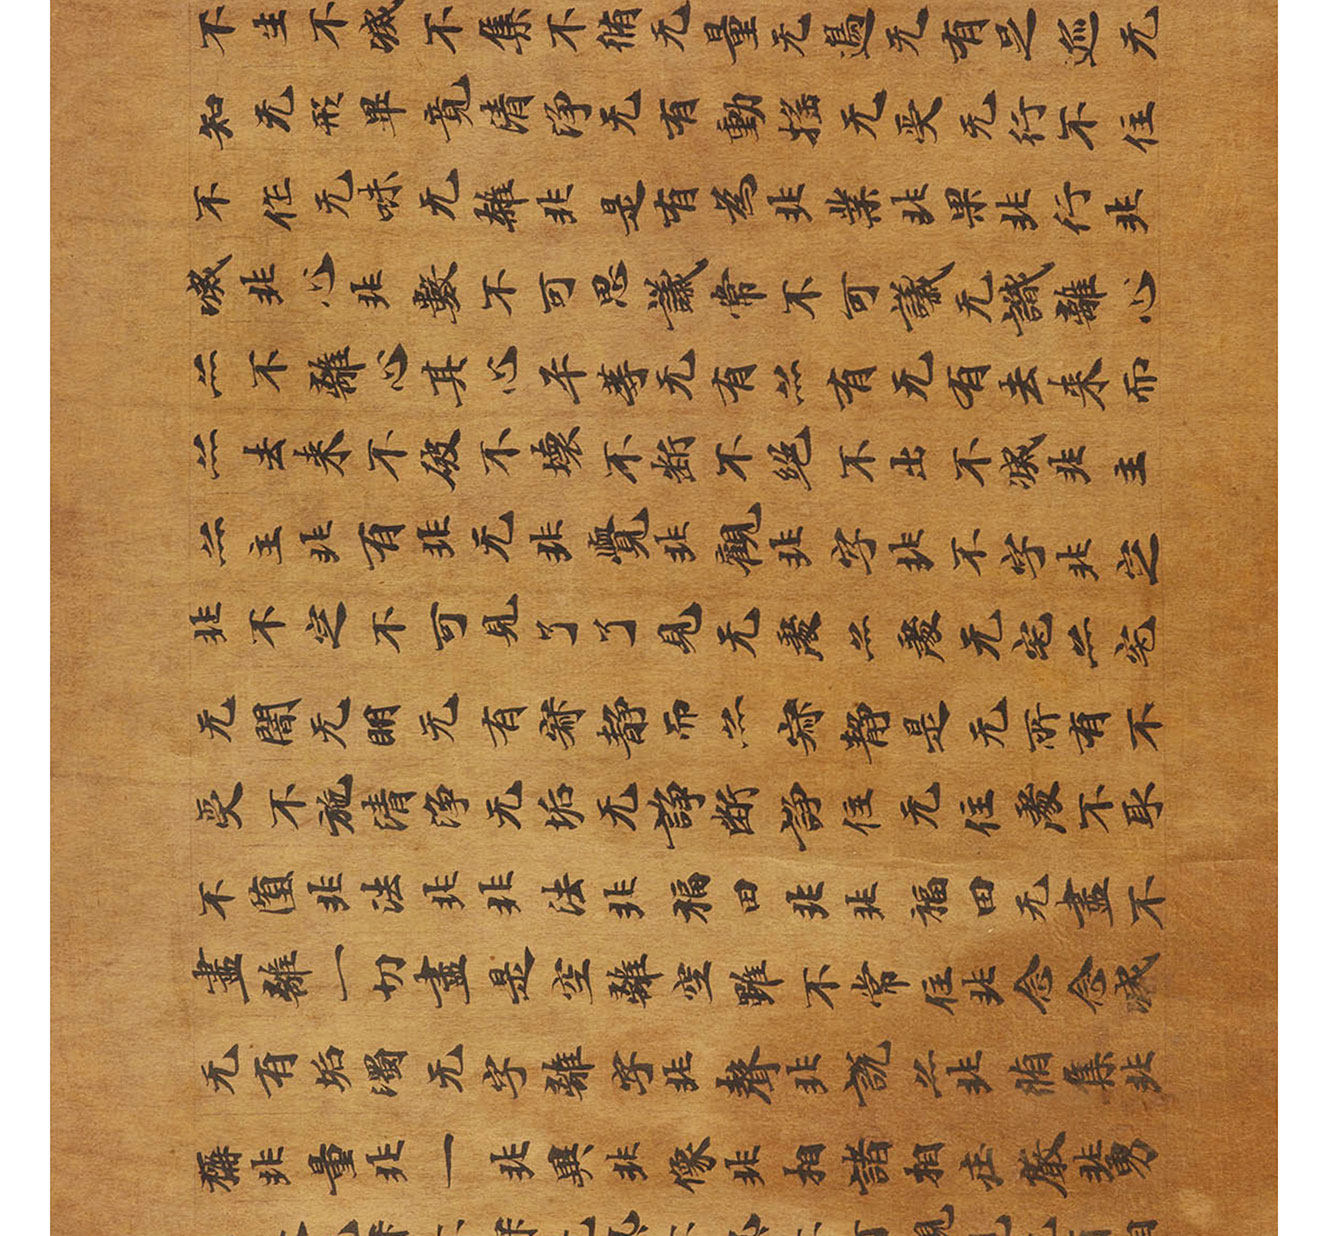 不生不滅不集不脩无量无過无有足迹无
知无形畢竟清淨无有動搖无受无行不住
不作无味无雜非是有為非業非果非行非
滅非心非數不可思議常不可議无識離心
亦不離心其心平等无有亦有无有去来而
亦去来不破不壞不断不絶不出不滅非主
亦主非有非无非覺非觀非字非不字非定
非不定不可見了了見无處亦處无宅亦宅
无闇无明无有寂靜而亦寂靜是无所有不
受不施清淨无垢无諍断諍住无住處不取
不堕非法非非法非福田非非福田无盡不
盡離一切盡是空離空雖不常住非念念滅
无有垢濁无字離字非聲非說亦非脩集非
稱非量非一非異非像非相諸相莊嚴非勇